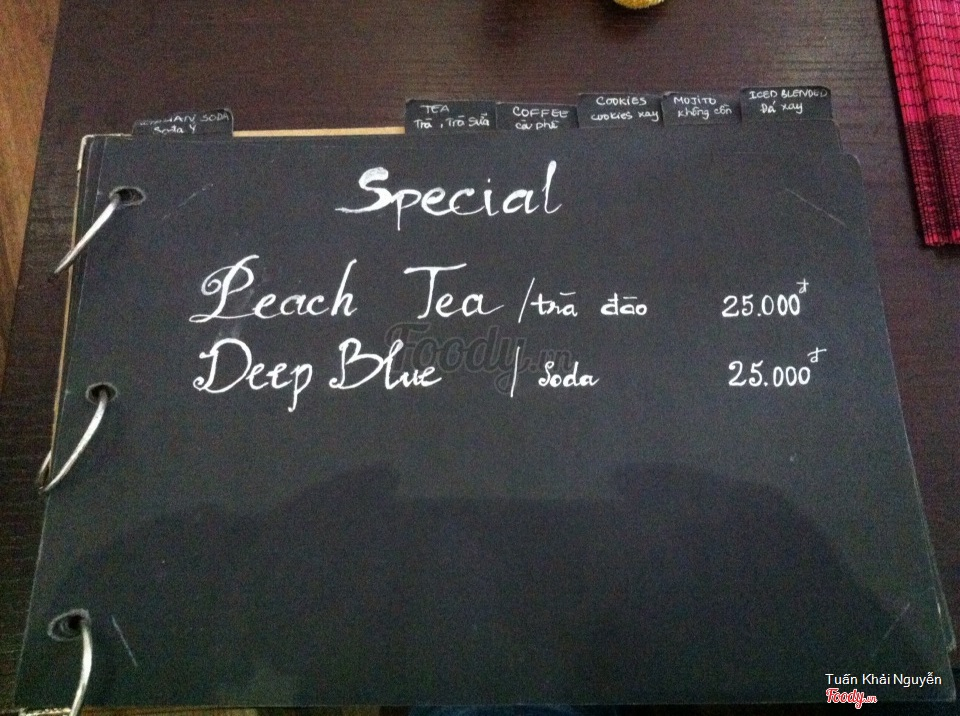 SODA
Soda Ý
TEA
Trà, Trà Sữa
COFFEE
cà phê
COOKIES
cookies xay
MOJITO
không cồn
ICED BLENDED
Đá xay
Special
Peach Tea / trà đào 25.000đ
Deep Blue / Soda 25.000đ
Foody.vn
Tuấn Khải Nguyễn
Foody.vn